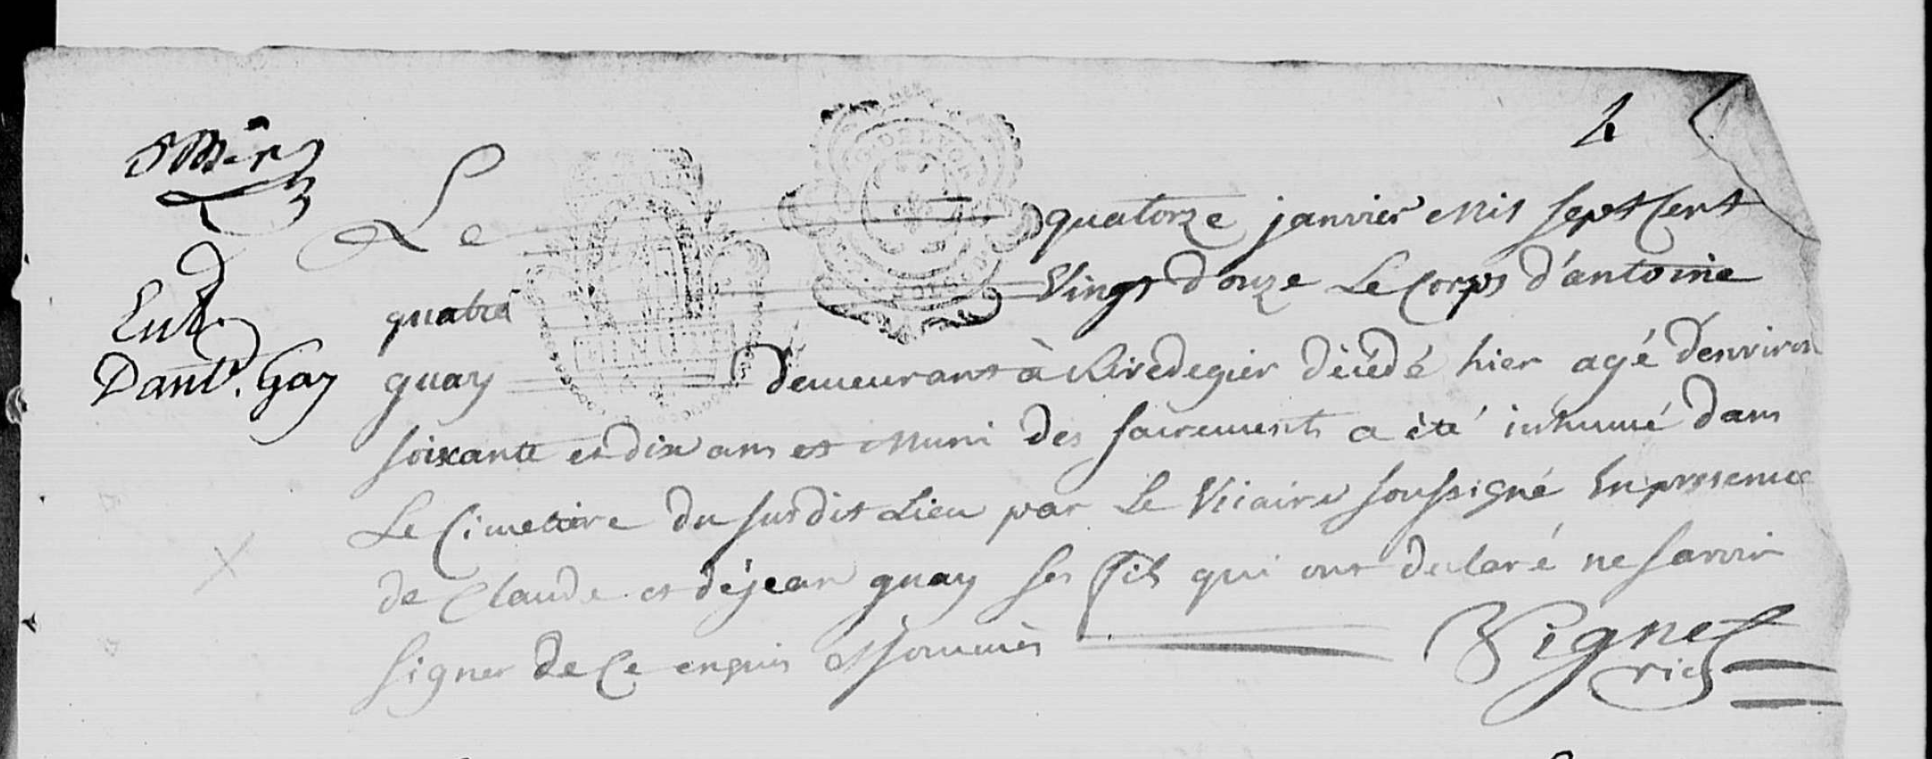 4
Le quatorze janvier mil sept Cent
quatre Vingt douze Le Corps d'antoine
guay demeurant à Rivedegier décédé hier agé denviron
soixante et dix ans et muni des sacrements a été inhumé dans
Le Cimetière du susdit Lieu par Le Vicaire soussigné En presence
de Claude et déjean guay ses fils qui ont declaré ne savoir
signer de Ce enquis et sommés
Vignet
vic
Ent.
D'ant. Gay